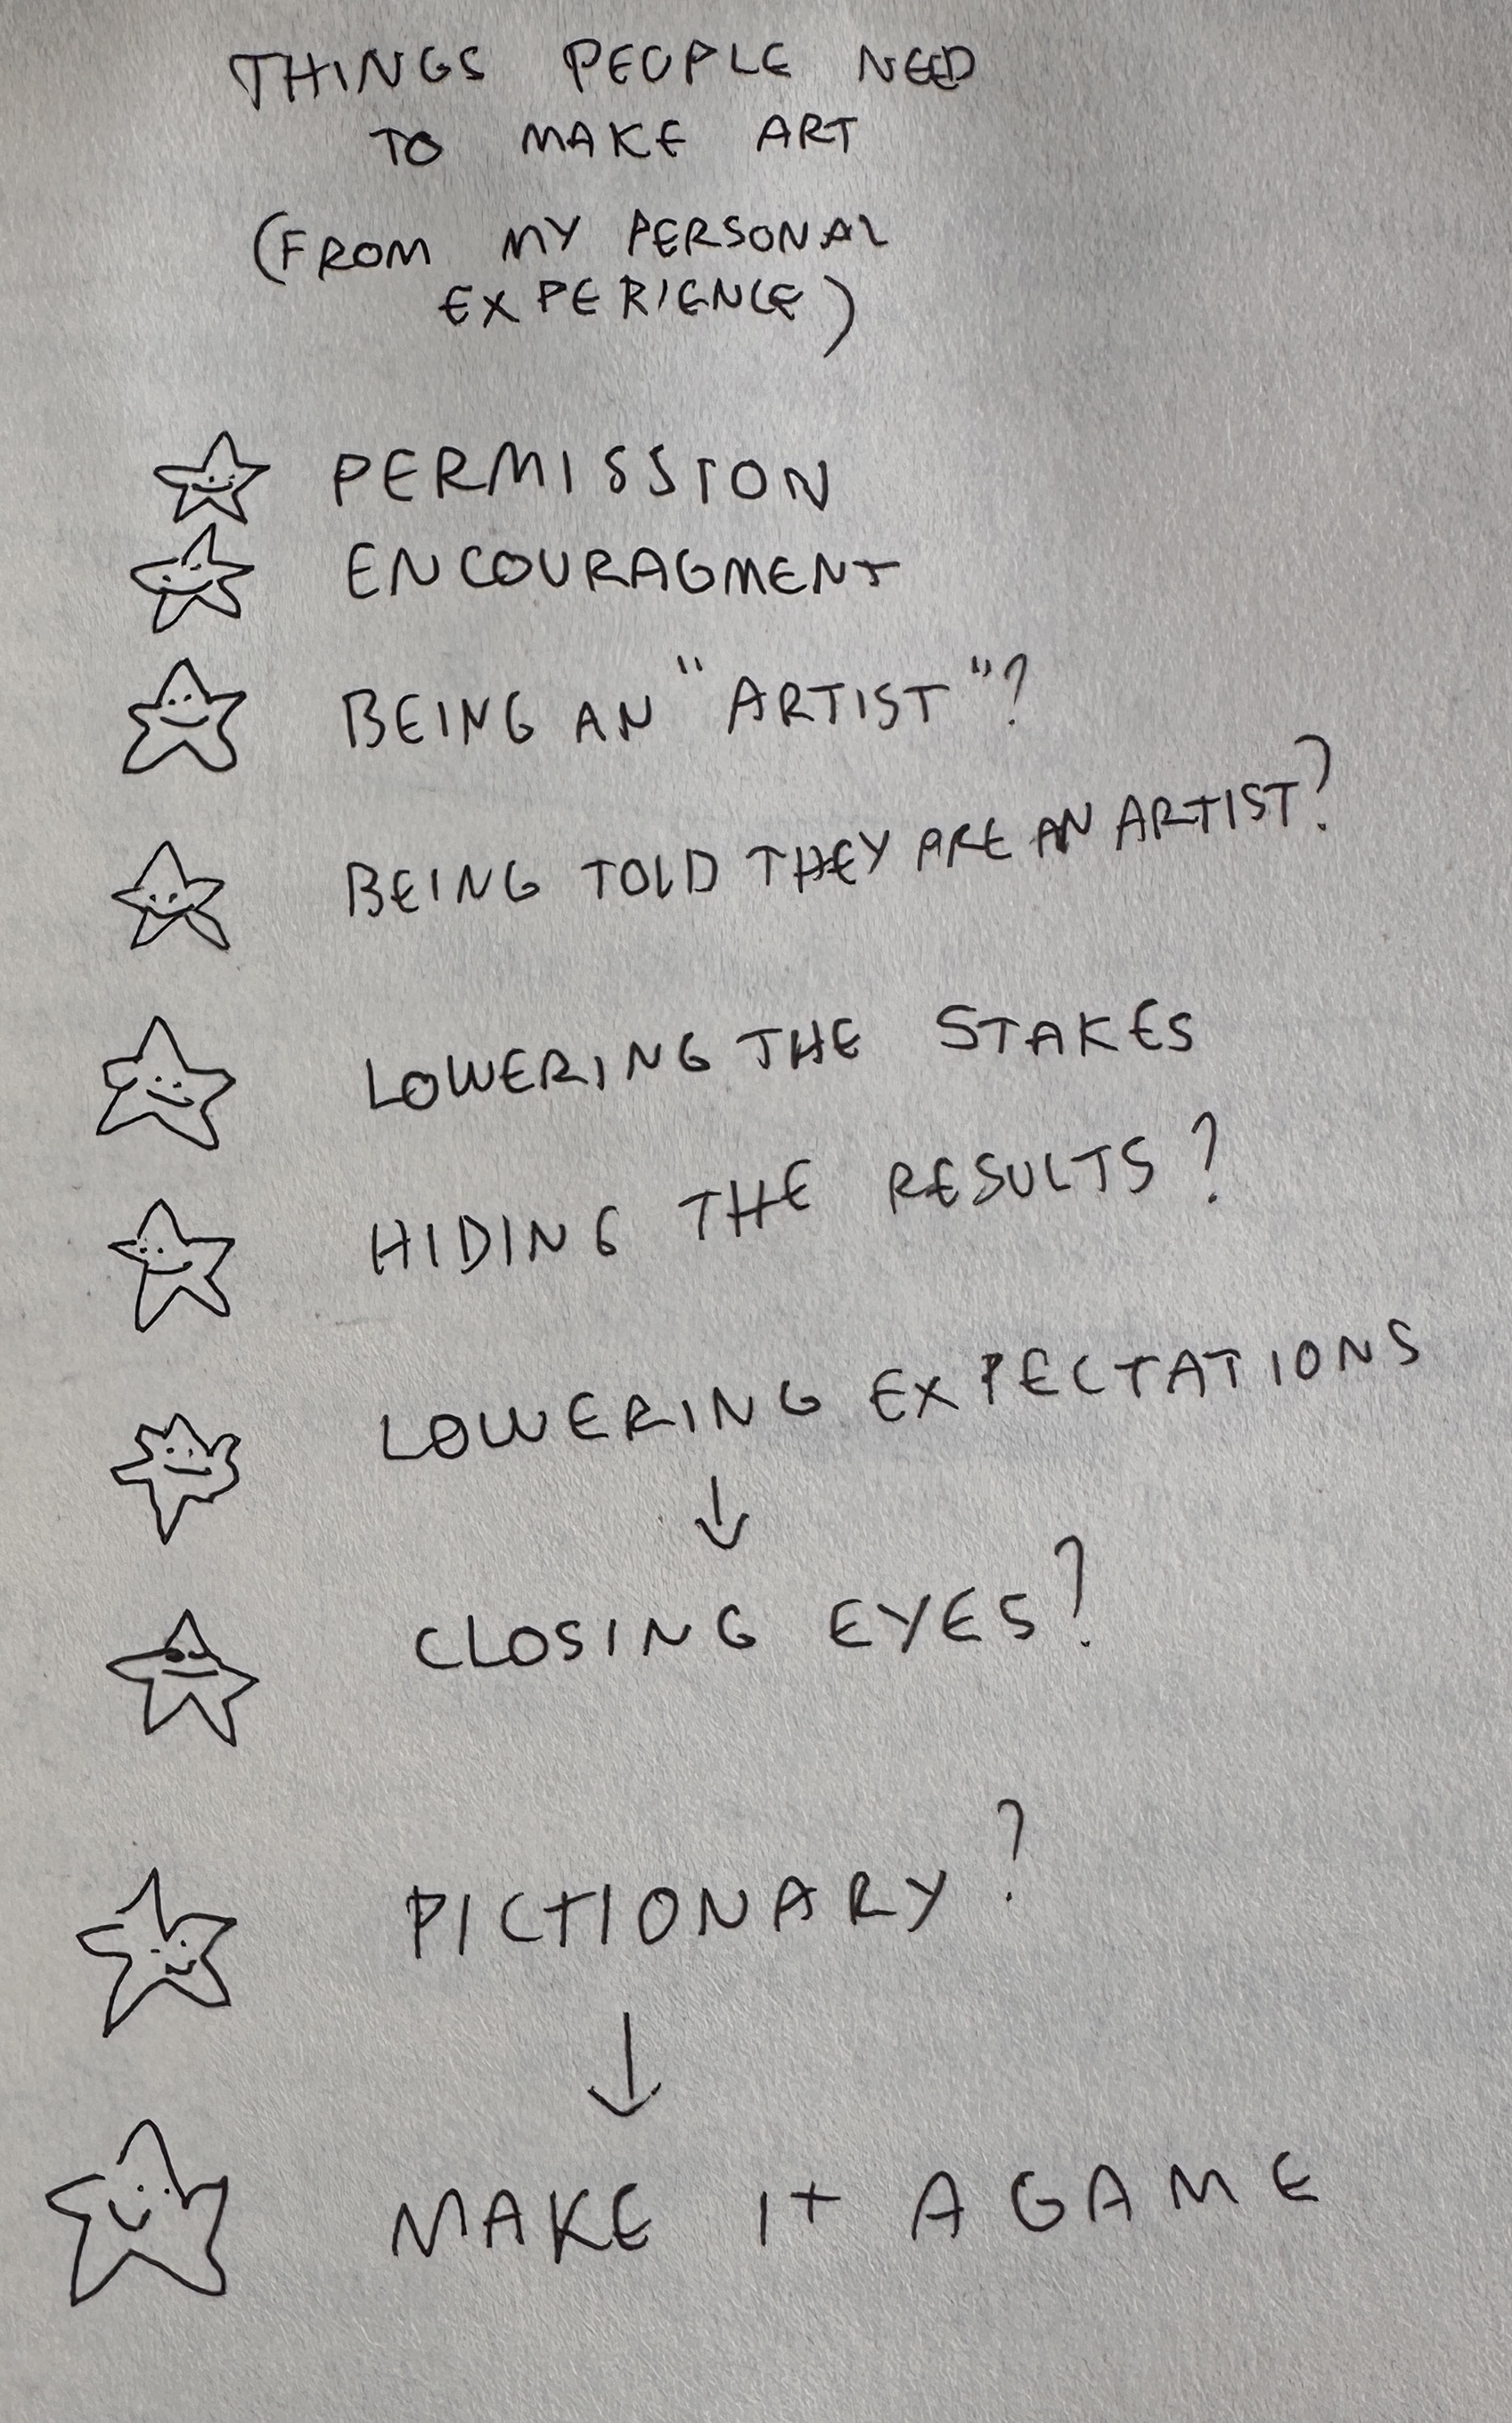 THINGS PEOPLE NEED
TO MAKE ART
(FROM MY PERSONAL
EXPERIENCE)
PERMISSION
ENCOURAGMENT
BEING AN "ARTIST"?
BEING TOLD THEY ARE AN ARTIST?
LOWERING THE STAKES
HIDING THE RESULTS?
LOWERING EXPECTATIONS
CLOSING EYES?
PICTIONARY?
MAKE IT A GAME